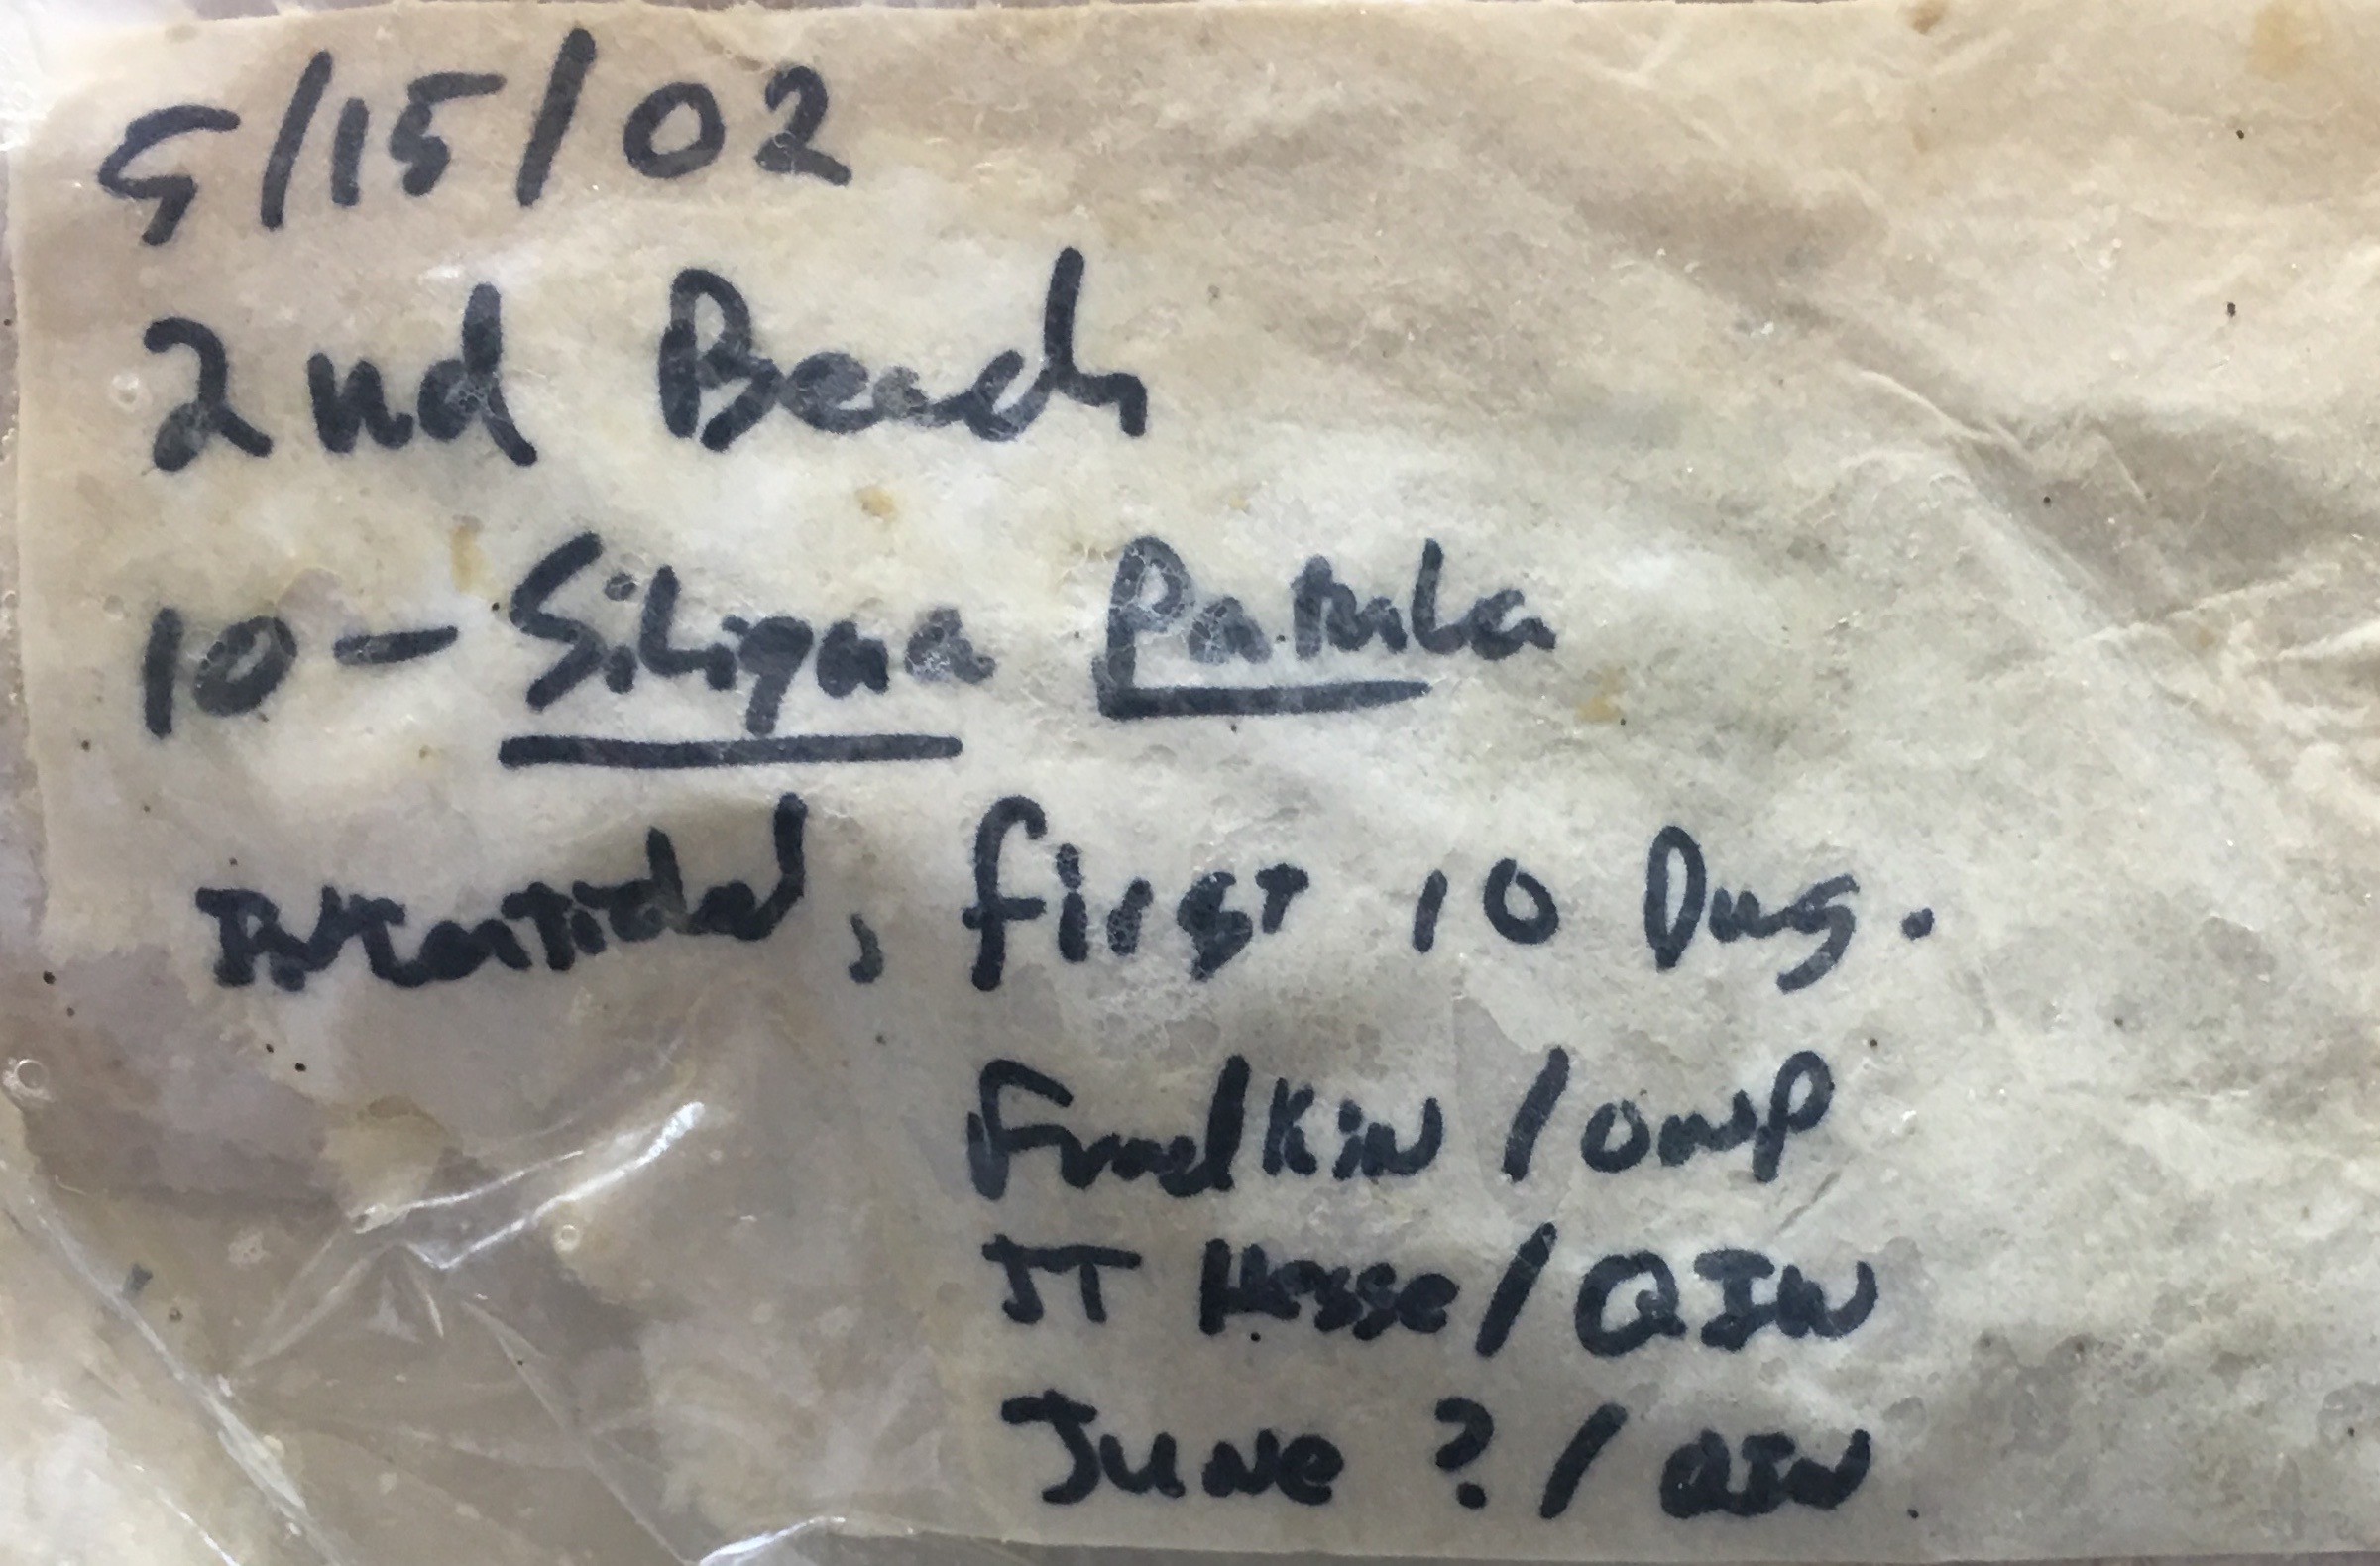 5/15/02
2nd Beach
10 - Siliqua Patula
Intertidal, first 10 Dug.
Fradkin / ONP
JT Hesse / QIN
June ? / QIN